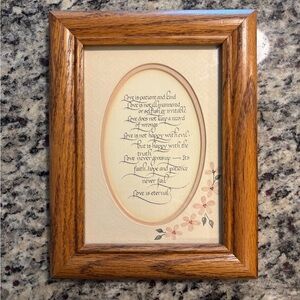 Love is patient and kind
Love is not ill mannered
or selfish or irritable
Love does not keep a record
of wrongs
Love is not happy with evil
but is happy with the
truth
Love never gives up — Its
faith, hope and patience
never fail
Love is eternal